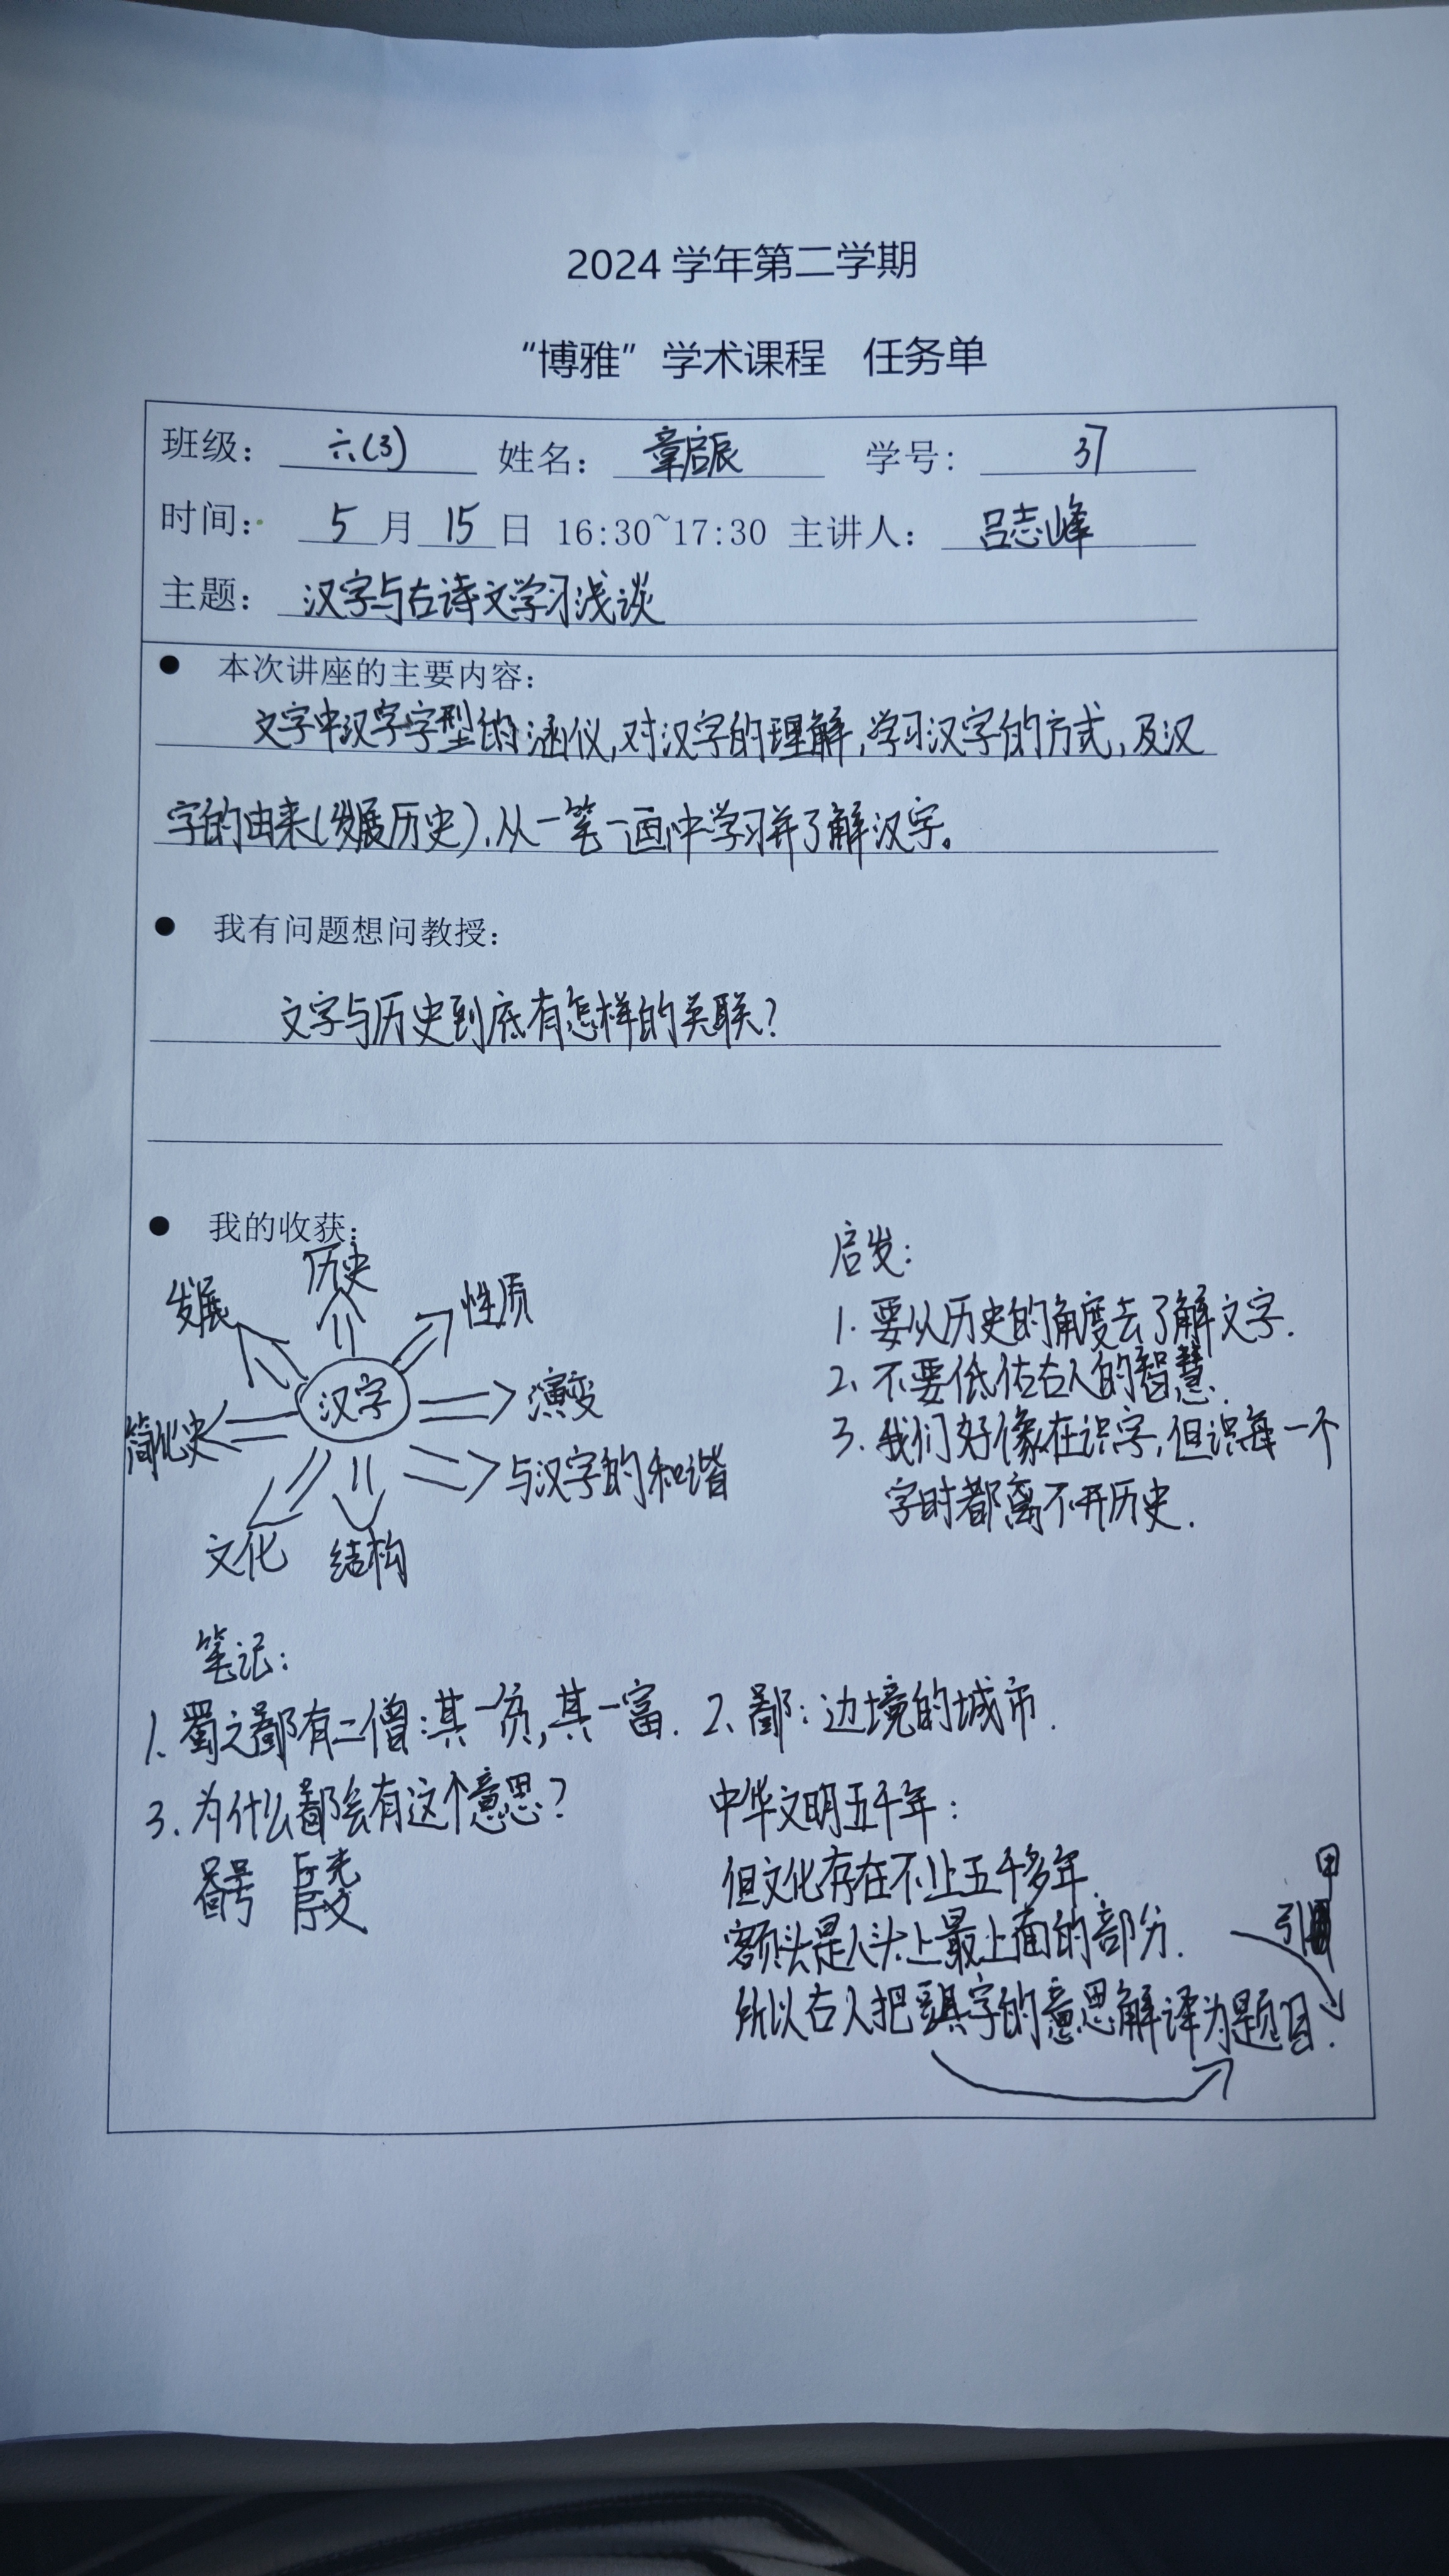 2024 学年第二学期
“博雅”学术课程 任务单
班级： 六(3) 姓名： 章启辰 学号： 37
时间： 5 月 15 日 16:30~17:30 主讲人： 吕志峰
主题： 汉字与古诗文学习浅谈
● 本次讲座的主要内容：
文字中汉字字型的涵仪,对汉字的理解,学习汉字的方式,及汉
字的由来(发展历史),从一笔一画中学习并了解汉字。
● 我有问题想问教授：
文字与历史到底有怎样的关联?
● 我的收获：
历史
发展
性质
汉字
演变
简化史
与汉字的和谐
文化
结构
启发：
1. 要从历史的角度去了解文字.
2. 不要低估古人的智慧.
3. 我们好像在识字,但识每一个
字时都离不开历史.
笔记：
1. 蜀之鄙有二僧:其一贫,其一富. 2. 鄙：边境的城市.
3. 为什么鄙会有这个意思?
中华文明五千年：
但文化存在不止五千多年.
额头是人头上最上面的部分.
引
所以古人把字的意思解译为题目.